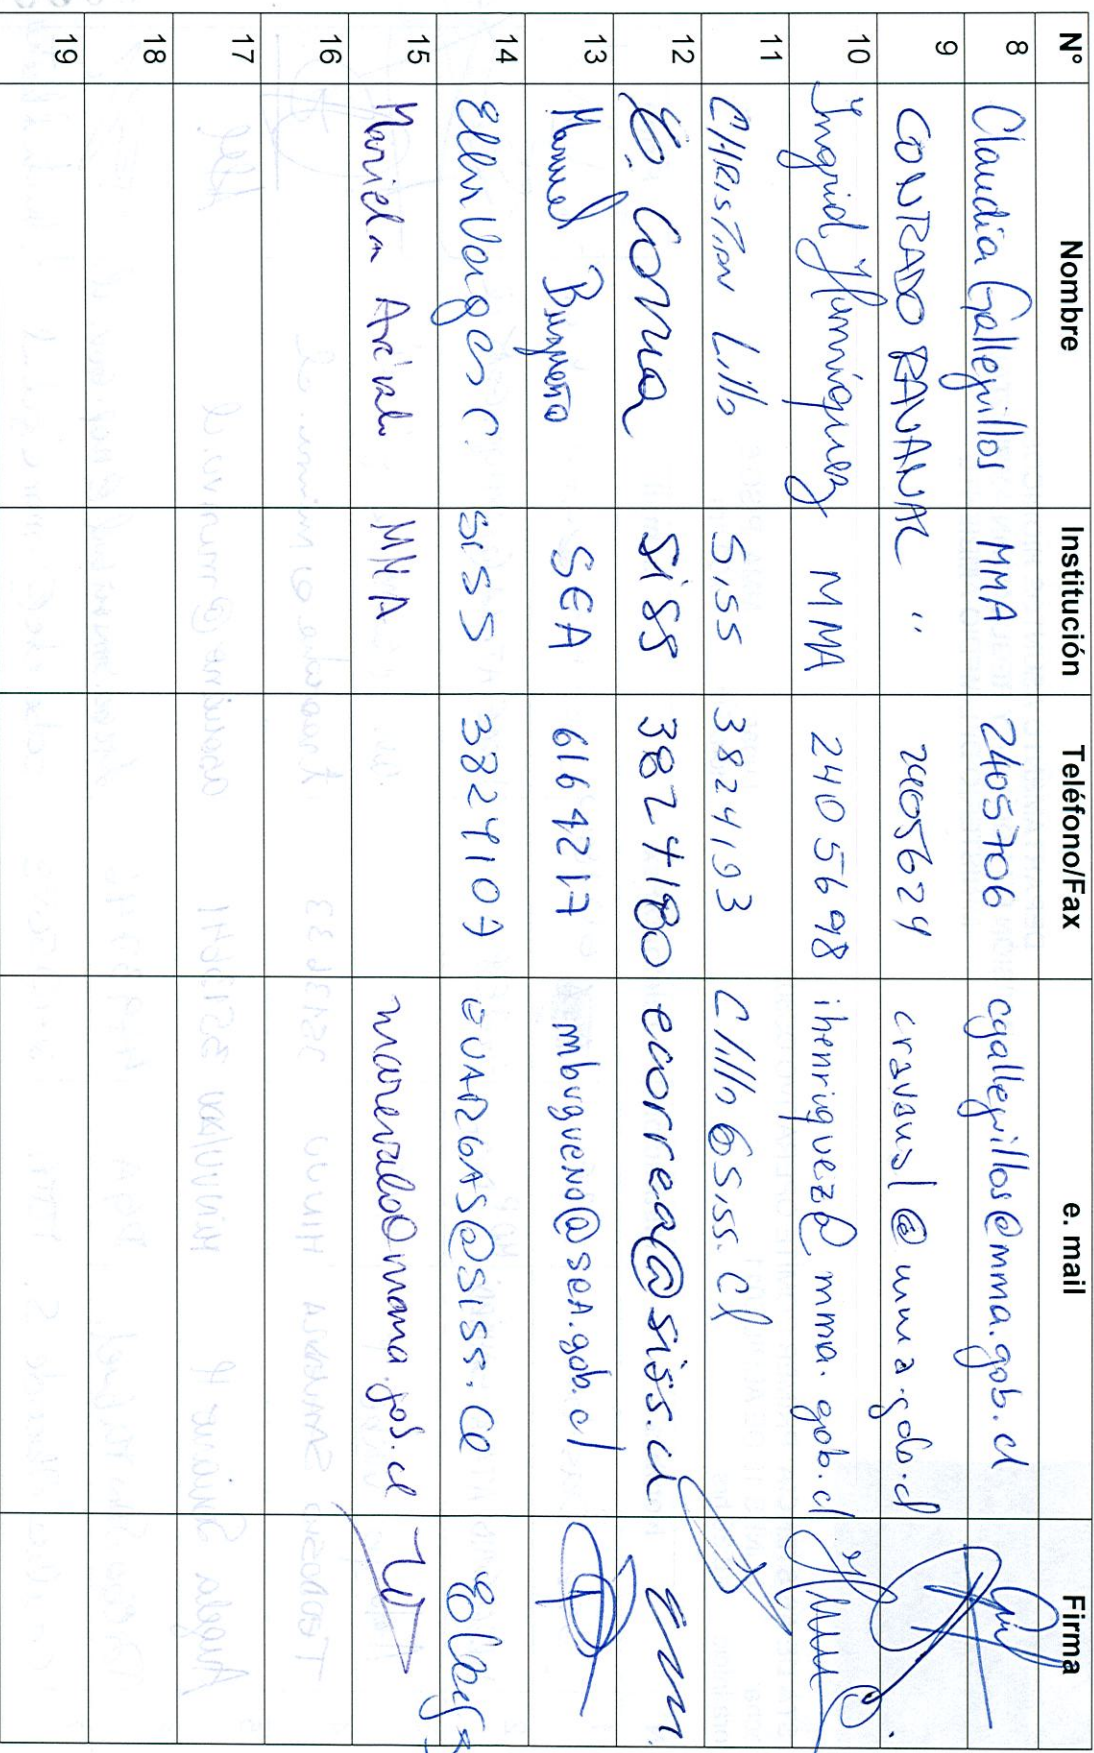 N° Nombre Institución Teléfono/Fax e. mail Firma
8 Claudia Galleguillos MMA 2405706 cgalleguillos@mma.gob.cl
9 CONRADO RAVANAL " 2405624 cravanal@mma.gob.cl
10 Ingrid Henríquez MMA 2405698 ihenriquez@mma.gob.cl
11 CHRISTIAN Lillo SISS 3824193 Clillo@siss.cl
12 E. Correa SiSS 3824180 ecorrea@siss.cl
13 Manuel Burgueño SEA 6164217 mburgueno@sea.gob.cl
14 Ellen Vargas C. SISS 3824107 EVARGAS@SISS.CL
15 Mariela Arévalo MMA marevalo@mma.gob.cl
16
17
18
19